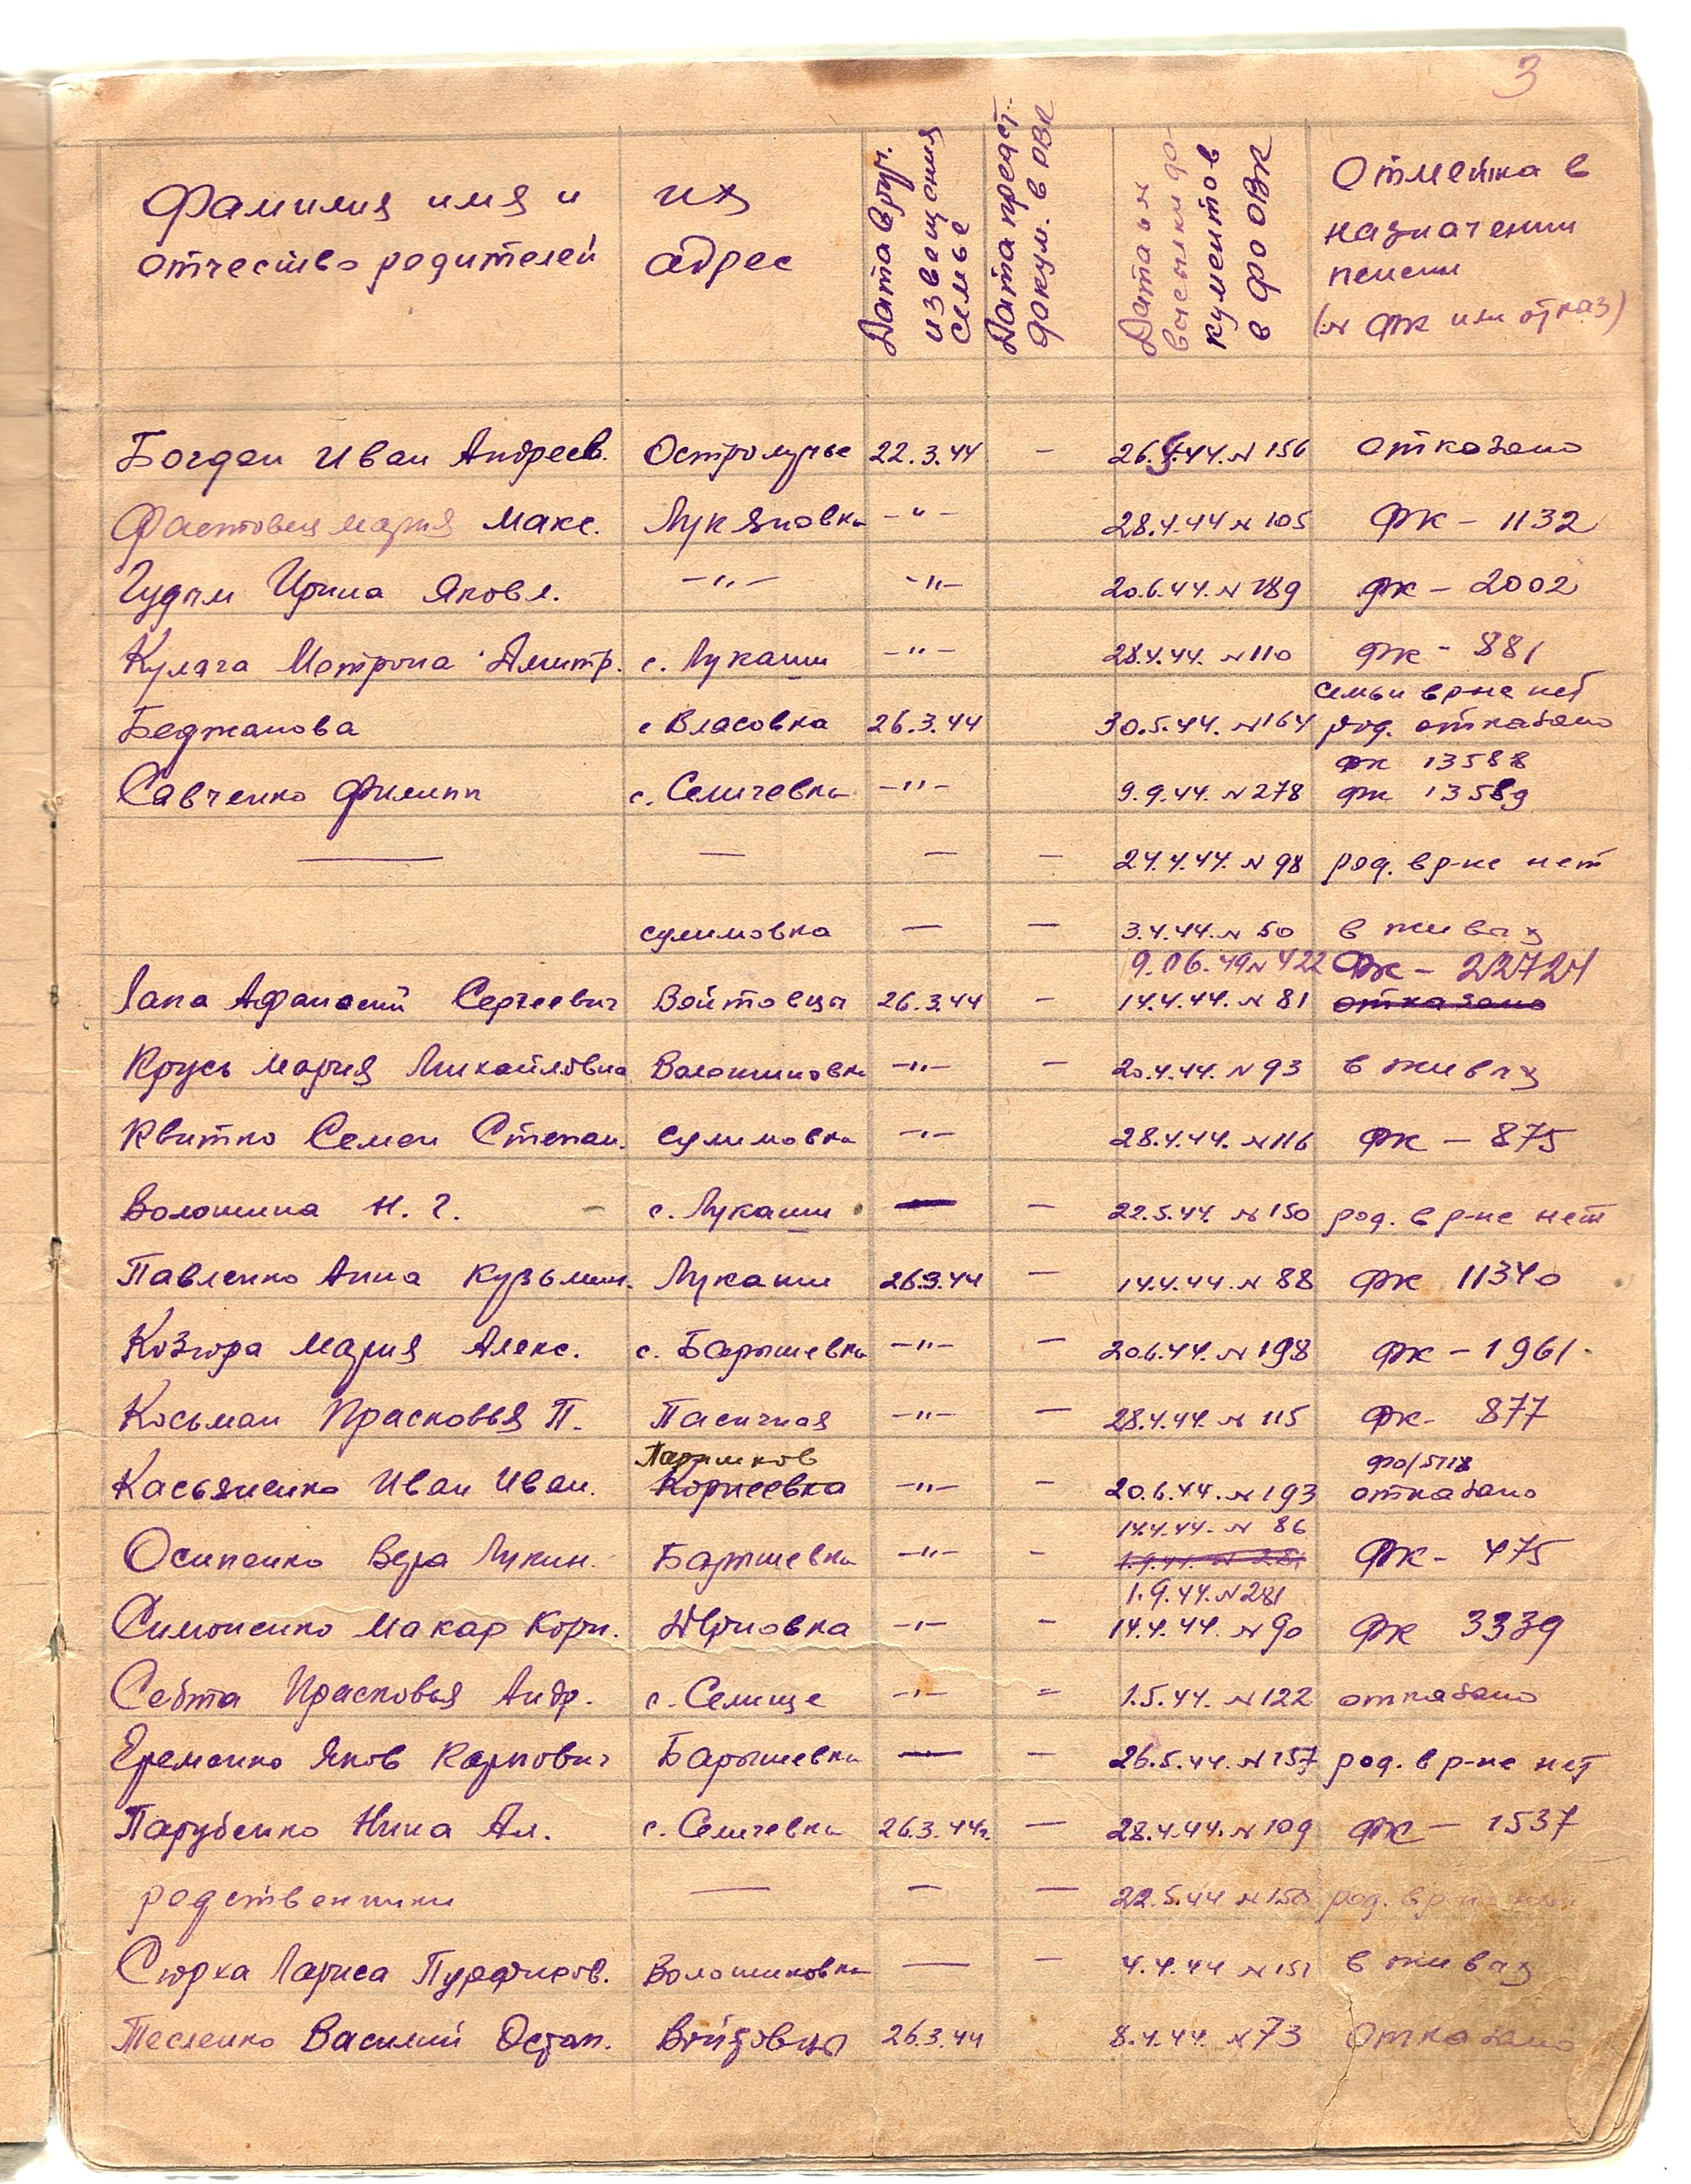 3
Фамилия имя и отчество родителей
их адрес
Дата вруч. извещения семье
Дата предст. докум. в РВК
Дата и № высылки документов в фо ОВК
Отметка в назначении пенсии (№ ФК или отказ)
Богдан Иван Андреев. Остролучье 22.3.44 – 26.5.44. № 156 отказано
Фастовец Мария Макс. Лукяновка –"– 28.4.44 № 105 ФК – 1132
Гудым Ирина Яковл. –"– –"– 20.6.44. № 189 ФК – 2002
Кулага Мотрона Дмитр. с. Лукаши –"– 28.4.44. № 110 ФК - 881
семьи в р-не нет
Беджанова с Власовка 26.3.44 30.5.44. № 164 род. отказано
ФК 13588
Савченко Филипп с. Селичевка –"– 9.9.44. № 278 ФК 13589
— — — – 24.4.44. № 98 род. в р-не нет
сулимовка — — 3.4.44. № 50 в живых
9.06.49 № 422 ФК – 22724
Лапа Афанасий Сергеевич Войтовцы 26.3.44 – 14.4.44. № 81 отказано
Крусь Мария Михайловна Волошиновка –"– – 20.4.44. № 93 в живых
Квитко Семен Степан. Сулимовка –"– 28.4.44. № 116 ФК – 875
Волошина Н. Г. – с. Лукаши — – 22.5.44. № 150 род. в р-не нет
Павленко Анна Кузьмин. Лукаши 26.3.44 – 14.4.44. № 88 ФК 11340
Козюра Мария Алекс. с. Барышевка –"– – 20.6.44. № 198 ФК – 1961
Косьман Прасковья П. Пасичная –"– – 28.4.44. № 115 ФК - 877
Парышков
Касьяненко Иван Иван. Корнеевка –"– – 20.6.44. № 193 отказано
14.4.44. № 86
Осипенко Вера Лукин. Барышевка –"– – 1.9.44. № 281 ФК - 475
1.9.44. № 281
Симоненко Макар Корн. –"– – 14.4.44. № 90 ФК 3339
Севта Прасковья Андр. с. Селище –"– = 1.5.44. № 122 отказано
Еременко Яков Карпович Барышевка — – 26.5.44. № 157 род. в р-не нет
Парубенко Нина Ал. с. Селичевка 26.3.44г. — 28.4.44. № 109 ФК – 1537
родственники — – — 22.5.44 № 150 род. в р-не нет
Сюрка Лариса Пурфиров. Волошиновка — – 4.4.44 № 151 в живых
Тесленко Василий Остап. Войтовцы 26.3.44 8.4.44. № 73 Отказано